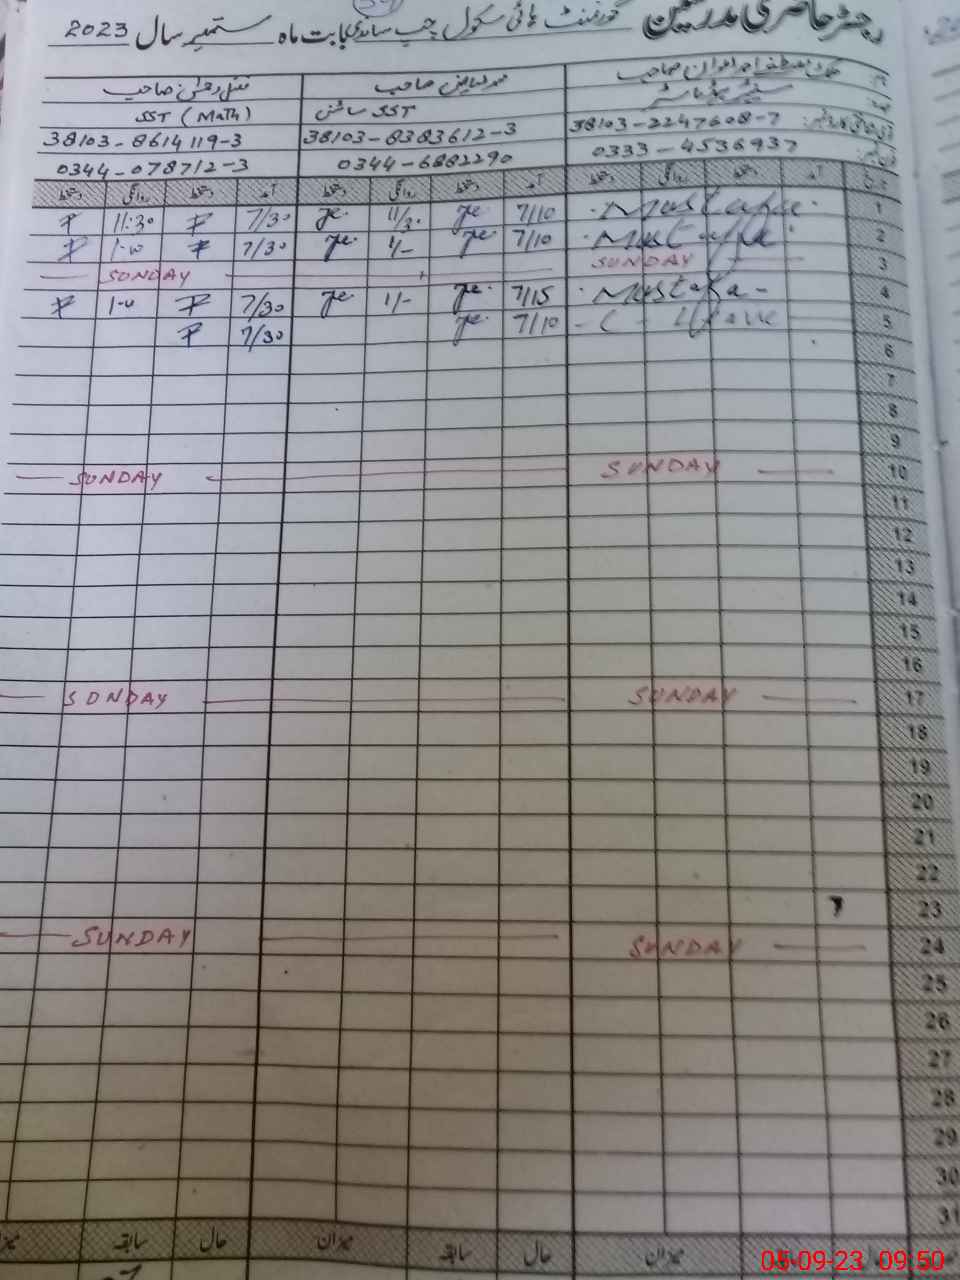 رجسٹر حاضری مدرسین گورنمنٹ ہائی سکول چب ساندی بابت ماہ ستمبر سال 2023
ملک مصطفے احمد اعوان صاحب محمد ریاض صاحب صاحب
سینئر ہیڈماسٹر SST سائنس SST (Math)
38103-2247608-7 38103-8383612-3 38103-8614119-3
0333-4536937 0344-6882290 0344-078712-3
تاریخ آمد دستخط روانگی دستخط آمد دستخط روانگی دستخط آمد دستخط روانگی دستخط
1 Mustafa 7/10 11/30 7/30 11:30
2 Mustafa 7/10 1/- 7/30 1-00
3 SUNDAY SUNDAY
4 Mustafa 7/15 1/- 7/30 1-00
5 C - Leave 7/10 7/30
6
7
8
9
10 SUNDAY SUNDAY
11
12
13
14
15
16
17 SUNDAY SUNDAY
18
19
20
21
22
23
24 SUNDAY SUNDAY
25
26
27
28
29
30
31
میزان حال سابقہ میزان حال سابقہ میزان
05-09-23 09:50